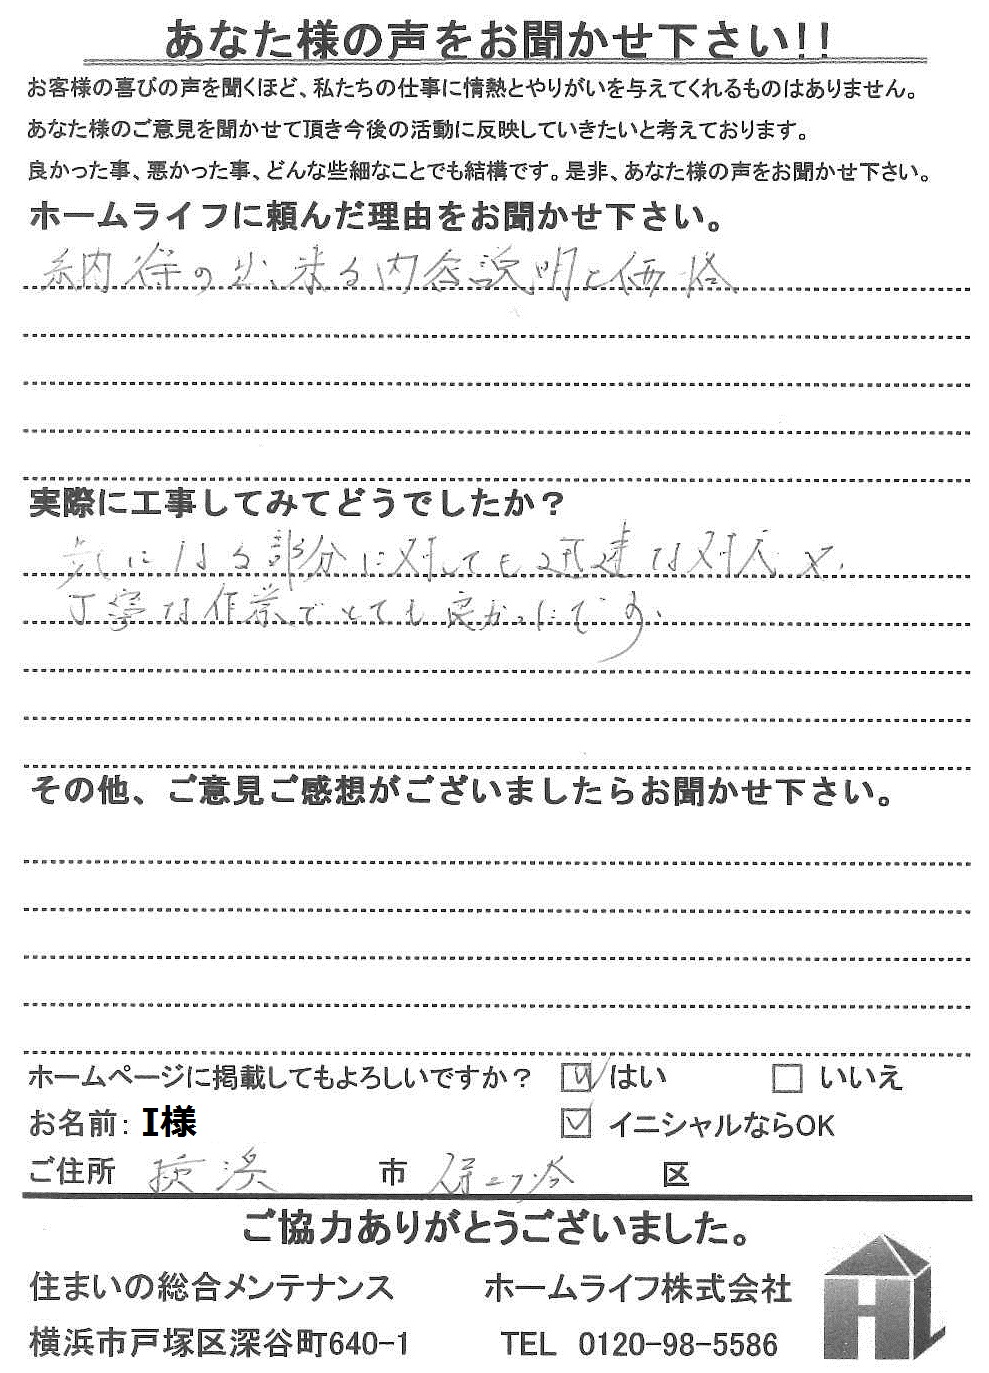 あなた様の声をお聞かせ下さい!!
お客様の喜びの声を聞くほど、私たちの仕事に情熱とやりがいを与えてくれるものはありません。
あなた様のご意見を聞かせて頂き今後の活動に反映していきたいと考えております。
良かった事、悪かった事、どんな些細なことでも結構です。是非、あなた様の声をお聞かせ下さい。
ホームライフに頼んだ理由をお聞かせ下さい。
納得の出来る内容説明と価格
実際に工事してみてどうでしたか？
気になる部分に対しても迅速な対応と、
丁寧な作業でとても良かったです。
その他、ご意見ご感想がございましたらお聞かせ下さい。
ホームページに掲載してもよろしいですか？ はい いいえ
お名前: I様 イニシャルならOK
ご住所 横浜 市 保土ヶ谷 区
ご協力ありがとうございました。
住まいの総合メンテナンス ホームライフ株式会社
横浜市戸塚区深谷町640-1 TEL 0120-98-5586
HL